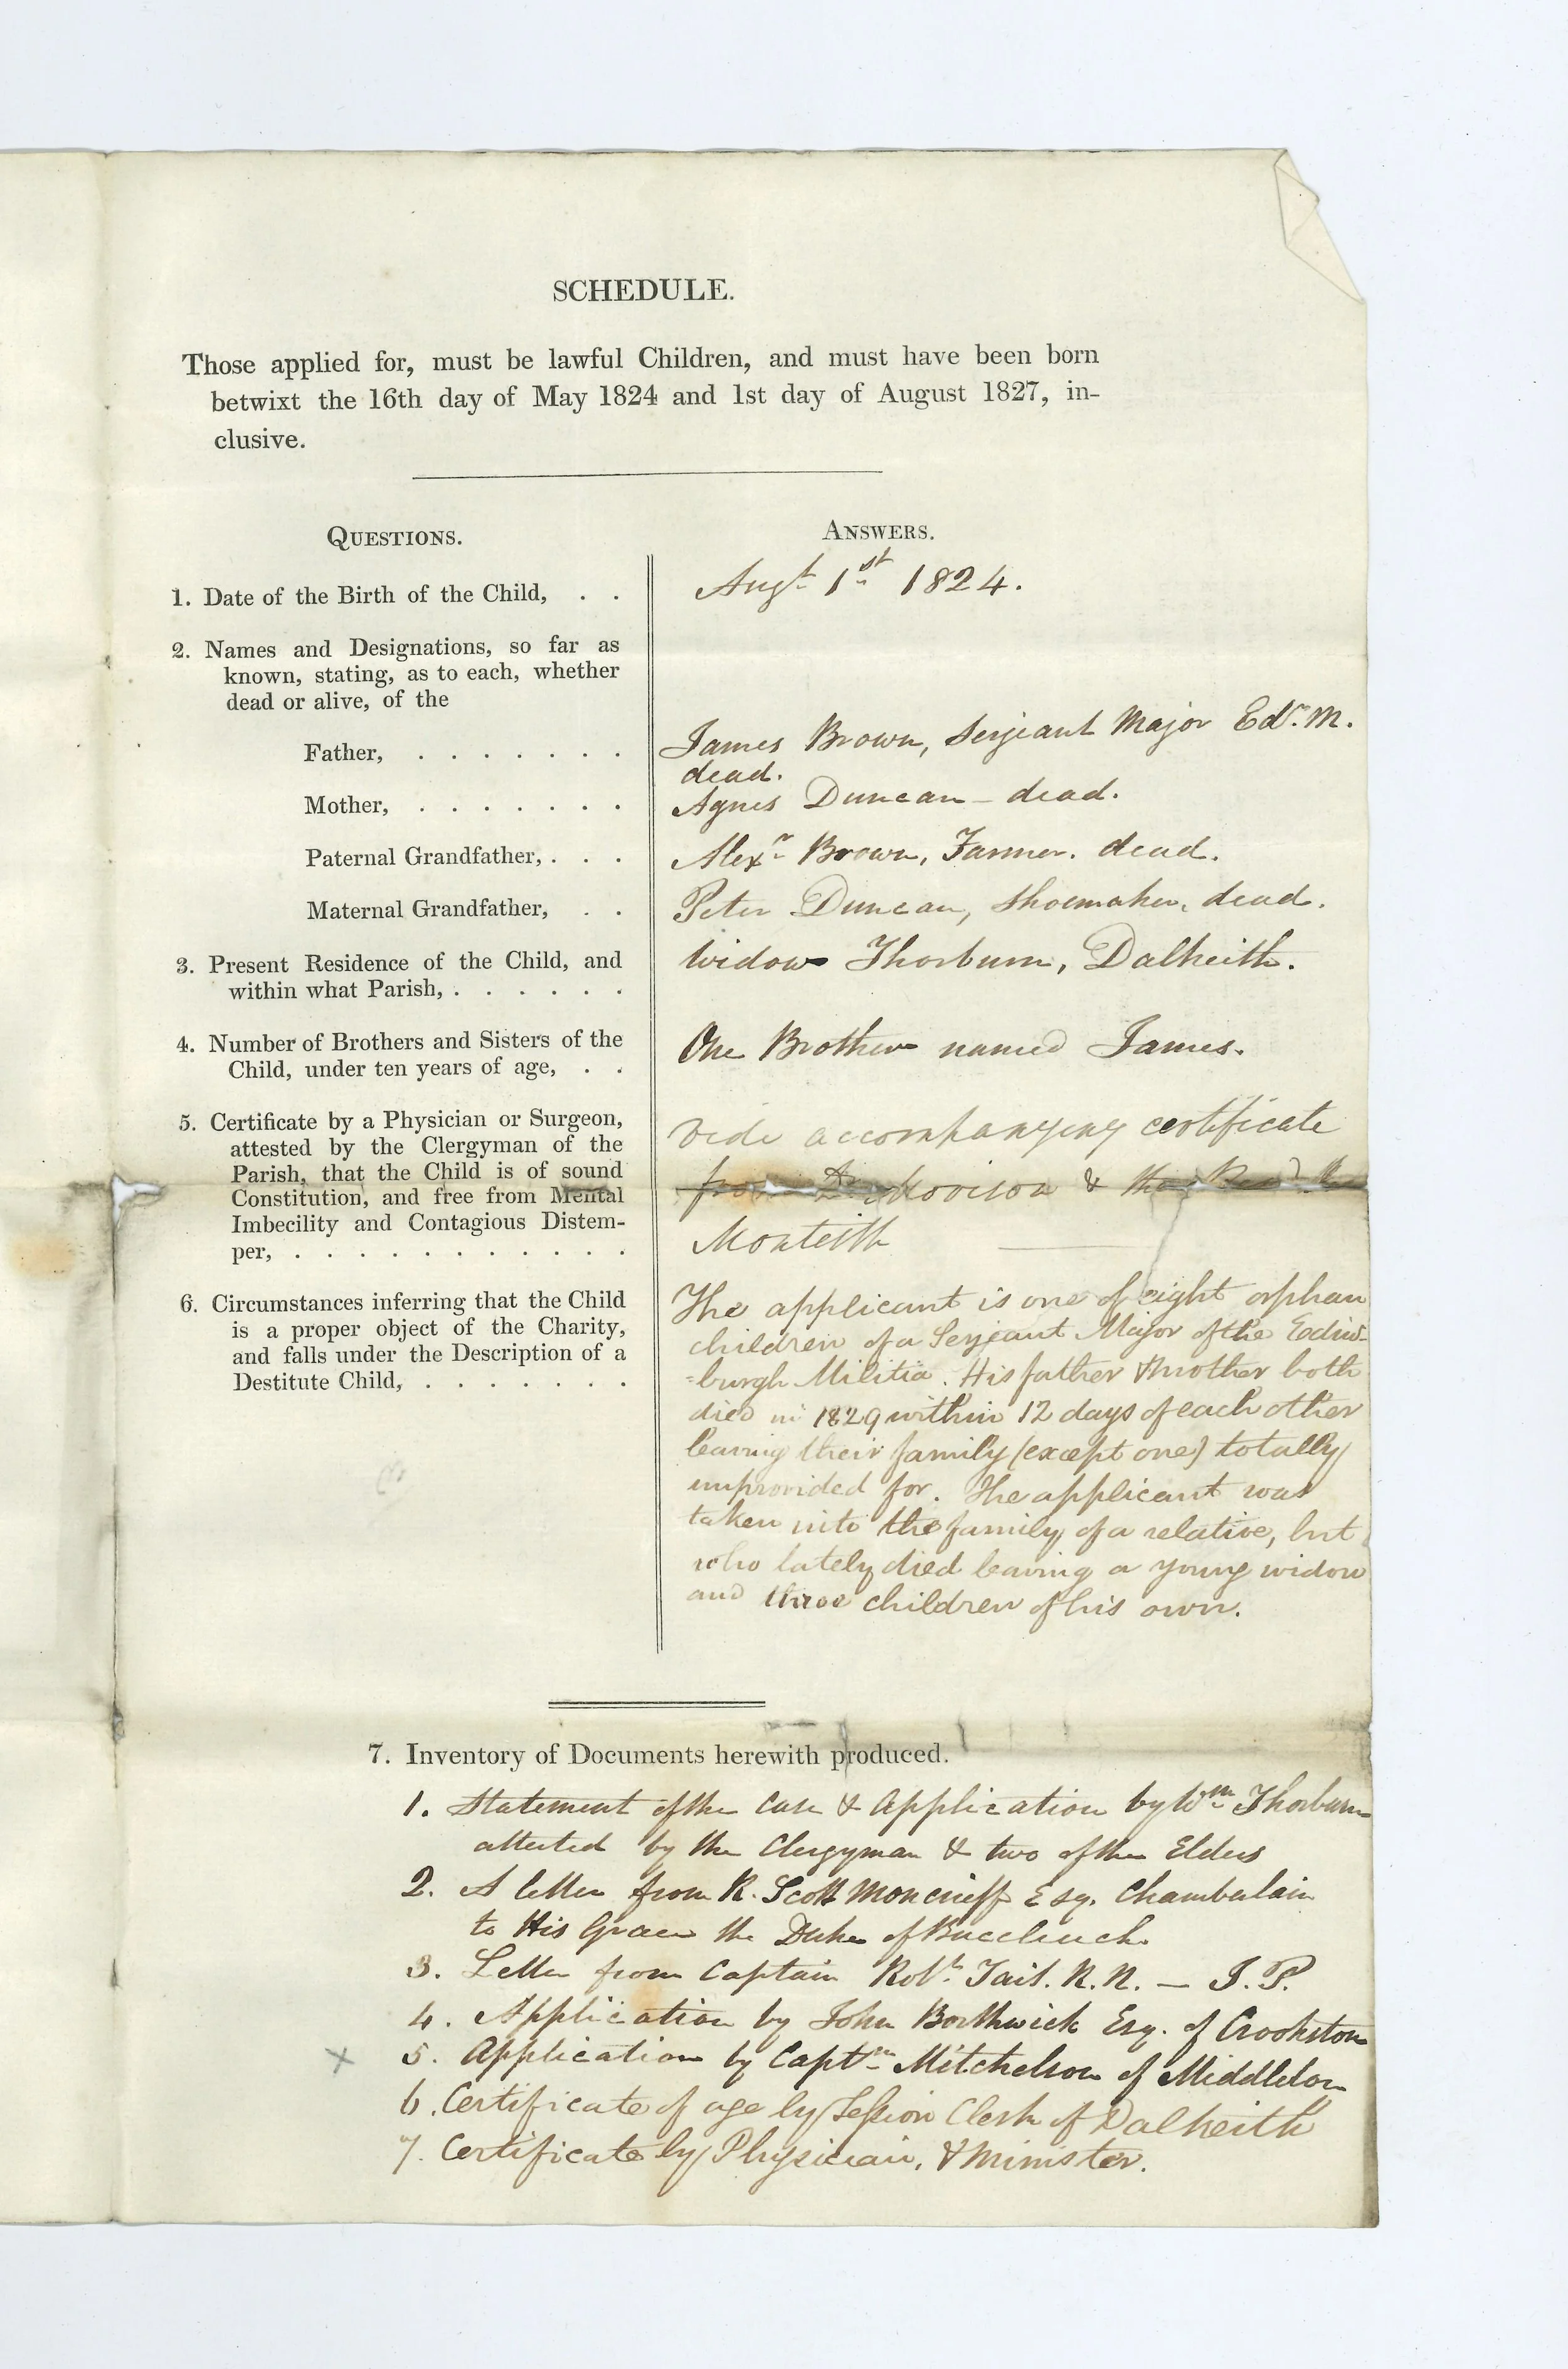 SCHEDULE.
Those applied for, must be lawful Children, and must have been born
betwixt the 16th day of May 1824 and 1st day of August 1827, in-
clusive.
QUESTIONS.
ANSWERS.
1. Date of the Birth of the Child, . .
Augt 1st 1824.
2. Names and Designations, so far as
known, stating, as to each, whether
dead or alive, of the
Father, . . . . . . .
James Brown, Serjeant Major Edr. M.
dead.
Mother, . . . . . . .
Agnes Duncan - dead.
Paternal Grandfather, . . .
Alexr Brown, Farmer. dead.
Maternal Grandfather, . .
Peter Duncan, Shoemaker, dead.
3. Present Residence of the Child, and
within what Parish, . . . . . .
Widow Thorburn, Dalkeith.
4. Number of Brothers and Sisters of the
Child, under ten years of age, . .
One Brother named James.
5. Certificate by a Physician or Surgeon,
attested by the Clergyman of the
Parish, that the Child is of sound
Constitution, and free from Mental
Imbecility and Contagious Distem-
per, . . . . . . . . . . . .
vide accompanying certificate
from Dr Morison & the Revd
Monteith
6. Circumstances inferring that the Child
is a proper object of the Charity,
and falls under the Description of a
Destitute Child, . . . . . . .
The applicant is one of eight orphan
children of a Serjeant Major of the Edin-
-burgh Militia. His father & mother both
died in 1829 within 12 days of each other
leaving their family (except one) totally
unprovided for. The applicant was
taken into the family of a relative, but
who lately died leaving a young widow
and three children of his own.
7. Inventory of Documents herewith produced.
1. Statement of the Case & Application by Wm Thorburn
attested by the Clergyman & two of the Elders
2. A letter from R. Scott Moncrieff Esq. Chamberlain
to His Grace the Duke of Buccleuch
3. Letter from Captain Robt Tait. R.N. — J.P.
4. Application by John Borthwick Esq. of Crookston
x 5. Application by Captn Mitchelson of Middleton
6. Certificate of age by Session Clerk of Dalkeith
7. Certificate by Physician, & Minister.